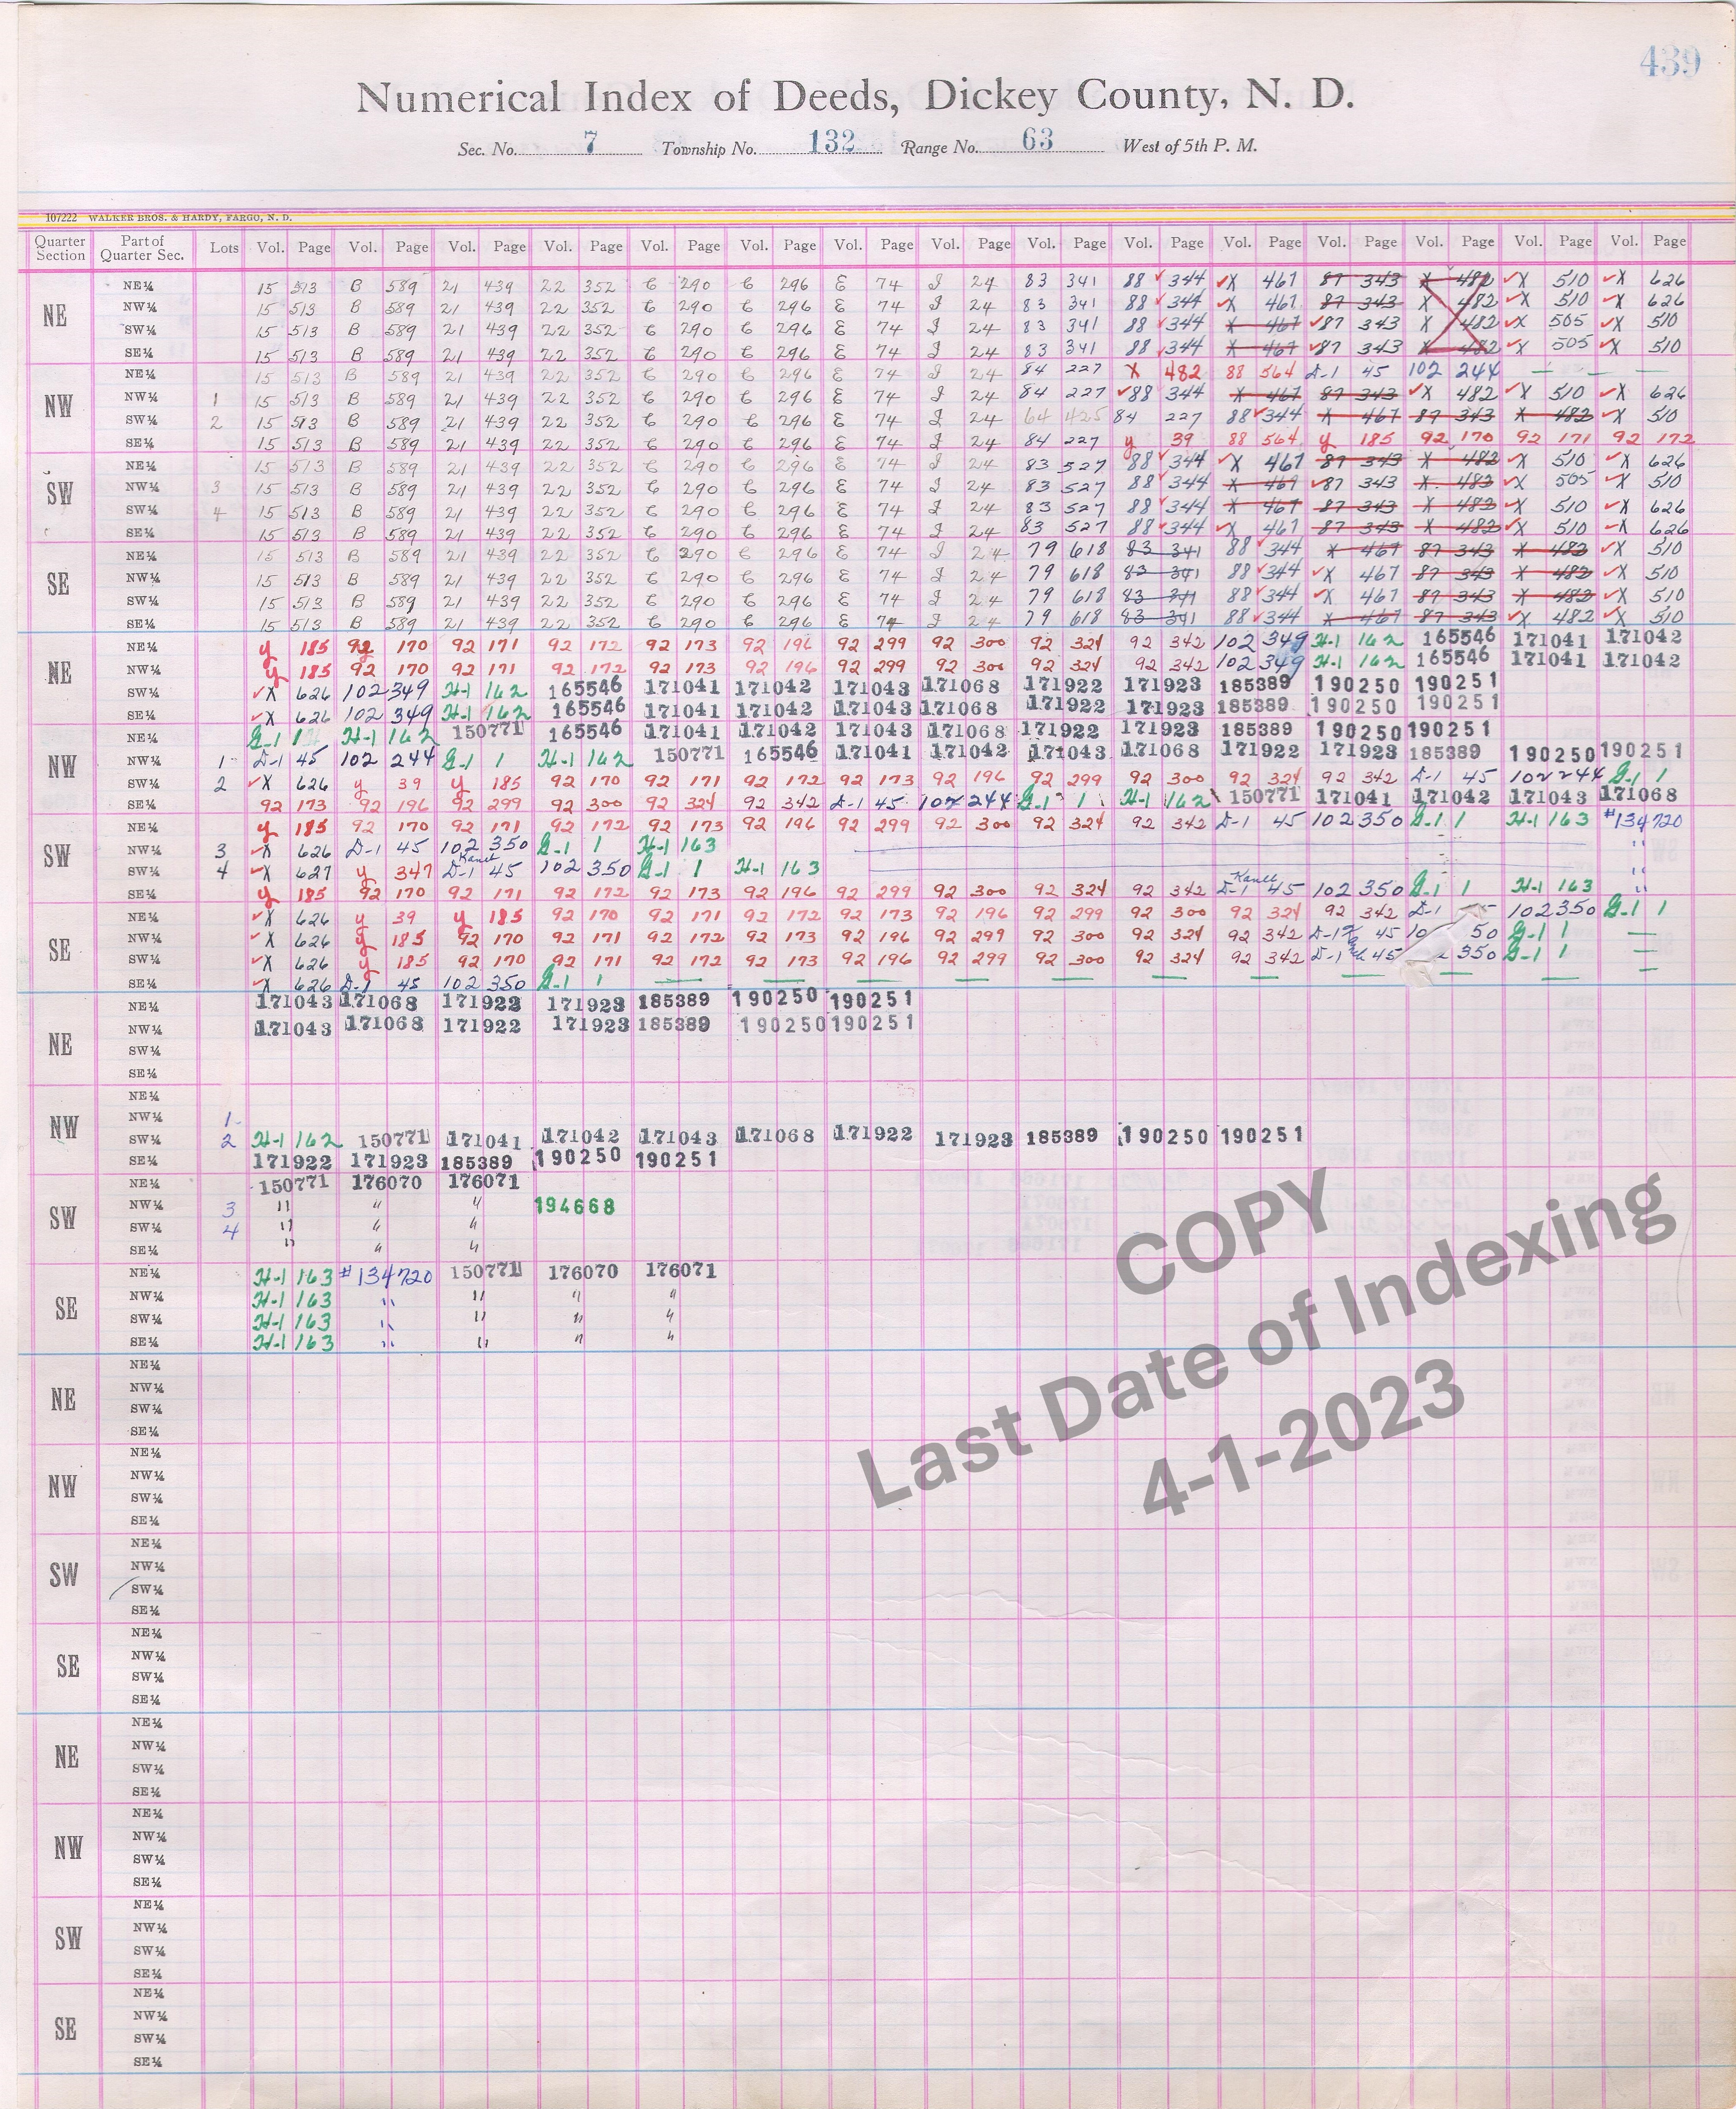 439
Numerical Index of Deeds, Dickey County, N. D.
Sec. No. 7 Township No. 132 Range No. 63 West of 5th P. M.
107222 WALKER BROS. & HARDY, FARGO, N. D.
Quarter Section Part of Quarter Sec. Lots Vol. Page Vol. Page Vol. Page Vol. Page Vol. Page Vol. Page Vol. Page Vol. Page Vol. Page Vol. Page Vol. Page Vol. Page Vol. Page Vol. Page Vol. Page
NE NE¼ 15 513 B 589 21 439 22 352 C 290 C 296 E 74 J 24 83 341 88 344 X 467 87 343 X 482 X 510 X 626
NW¼ 15 513 B 589 21 439 22 352 C 290 C 296 E 74 J 24 83 341 88 344 X 467 87 343 X 482 X 510 X 626
SW¼ 15 513 B 589 21 439 22 352 C 290 C 296 E 74 J 24 83 341 88 344 X 467 87 343 X 482 X 505 X 510
SE¼ 15 513 B 589 21 439 22 352 C 290 C 296 E 74 J 24 83 341 88 344 X 467 87 343 X 482 X 505 X 510
NW NE¼ 15 513 B 589 21 439 22 352 C 290 C 296 E 74 J 24 84 227 X 482 88 564 D-1 45 102 244
NW¼ 1 15 513 B 589 21 439 22 352 C 290 C 296 E 74 J 24 84 227 88 344 X 467 87 343 X 482 X 510 X 626
SW¼ 2 15 513 B 589 21 439 22 352 C 290 C 296 E 74 J 24 64 425 84 227 88 344 X 467 87 343 X 482 X 510
SE¼ 15 513 B 589 21 439 22 352 C 290 C 296 E 74 J 24 84 227 y 39 88 564 y 185 92 170 92 171 92 172
SW NE¼ 15 513 B 589 21 439 22 352 C 290 C 296 E 74 J 24 83 527 88 344 X 467 87 343 X 482 X 510 X 626
NW¼ 3 15 513 B 589 21 439 22 352 C 290 C 296 E 74 J 24 83 527 88 344 X 467 87 343 X 482 X 505 X 510
SW¼ 4 15 513 B 589 21 439 22 352 C 290 C 296 E 74 J 24 83 527 88 344 X 467 87 343 X 482 X 510 X 626
SE¼ 15 513 B 589 21 439 22 352 C 290 C 296 E 74 J 24 83 527 88 344 X 467 87 343 X 482 X 510 X 626
SE NE¼ 15 513 B 589 21 439 22 352 C 290 C 296 E 74 J 24 79 618 83 341 88 344 X 467 87 343 X 482 X 510
NW¼ 15 513 B 589 21 439 22 352 C 290 C 296 E 74 J 24 79 618 83 341 88 344 X 467 87 343 X 482 X 510
SW¼ 15 513 B 589 21 439 22 352 C 290 C 296 E 74 J 24 79 618 83 341 88 344 X 467 87 343 X 482 X 510
SE¼ 15 513 B 589 21 439 22 352 C 290 C 296 E 74 J 24 79 618 83 341 88 344 X 467 87 343 X 482 X 510
NE NE¼ y 185 92 170 92 171 92 172 92 173 92 196 92 299 92 300 92 324 92 342 102 349 H-1 162 165546 171041 171042
NW¼ y 185 92 170 92 171 92 172 92 173 92 196 92 299 92 300 92 324 92 342 102 349 H-1 162 165546 171041 171042
SW¼ X 626 102 349 H-1 162 165546 171041 171042 171043 171068 171922 171923 185389 190250 190251
SE¼ X 626 102 349 H-1 162 165546 171041 171042 171043 171068 171922 171923 185389 190250 190251
NW NE¼ G-1 1 H-1 162 150771 165546 171041 171042 171043 171068 171922 171923 185389 190250 190251
NW¼ 1 D-1 45 102 244 G-1 1 H-1 162 150771 165546 171041 171042 171043 171068 171922 171923 185389 190250 190251
SW¼ 2 X 626 y 39 y 185 92 170 92 171 92 172 92 173 92 196 92 299 92 300 92 324 92 342 D-1 45 102 244 G-1 1
SE¼ 92 173 92 196 92 299 92 300 92 324 92 342 D-1 45 102 244 G-1 1 H-1 162 150771 171041 171042 171043 171068
SW NE¼ y 185 92 170 92 171 92 172 92 173 92 196 92 299 92 300 92 324 92 342 D-1 45 102 350 G-1 1 H-1 163 #134720
NW¼ 3 X 626 D-1 45 102 350 G-1 1 H-1 163 "
SW¼ 4 X 627 y 347 D-1 45 102 350 G-1 1 H-1 163 "
SE¼ y 185 92 170 92 171 92 172 92 173 92 196 92 299 92 300 92 324 92 342 D-1 45 102 350 G-1 1 H-1 163 "
SE NE¼ X 626 y 39 y 185 92 170 92 171 92 172 92 173 92 196 92 299 92 300 92 324 92 342 D-1 102 350 G-1 1
NW¼ X 626 y 185 92 170 92 171 92 172 92 173 92 196 92 299 92 300 92 324 92 342 D-1 45 10 50 G-1 1
SW¼ X 626 y 185 92 170 92 171 92 172 92 173 92 196 92 299 92 300 92 324 92 342 D-1 45 2 350 G-1 1
SE¼ X 626 D-1 45 102 350 G-1 1
NE NE¼ 171043 171068 171922 171923 185389 190250 190251
NW¼ 171043 171068 171922 171923 185389 190250 190251
SW¼
SE¼
NW NE¼
NW¼ 1
SW¼ 2 H-1 162 150771 171041 171042 171043 171068 171922 171923 185389 190250 190251
SE¼ 171922 171923 185389 190250 190251
SW NE¼ 150771 176070 176071
NW¼ 3 " " " 194668
SW¼ 4 " " "
SE¼ " " "
SE NE¼ H-1 163 #134720 150771 176070 176071
NW¼ H-1 163 " " " "
SW¼ H-1 163 " " " "
SE¼ H-1 163 " " " "
NE NE¼
NW¼
SW¼
SE¼
NW NE¼
NW¼
SW¼
SE¼
SW NE¼
NW¼
SW¼
SE¼
SE NE¼
NW¼
SW¼
SE¼
NE NE¼
NW¼
SW¼
SE¼
NW NE¼
NW¼
SW¼
SE¼
SW NE¼
NW¼
SW¼
SE¼
SE NE¼
NW¼
SW¼
SE¼
COPY
Last Date of Indexing
4-1-2023